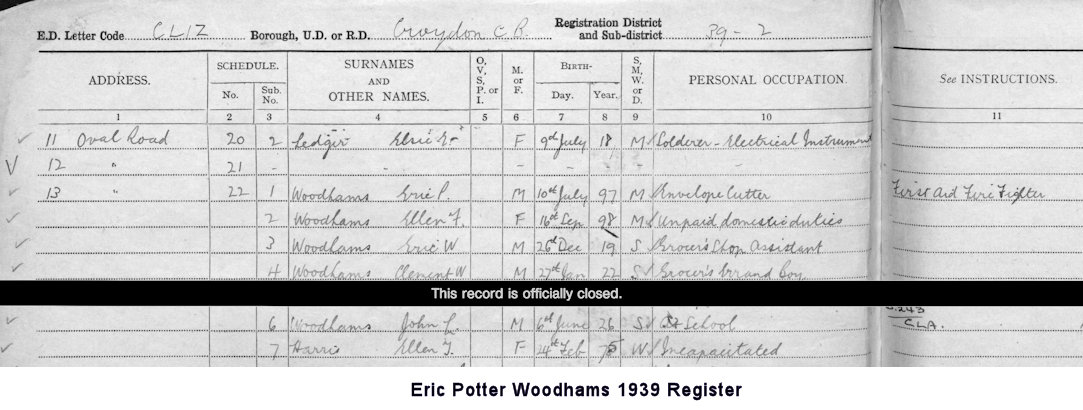 E.D. Letter Code CLIZ Borough, U.D. or R.D. Croydon C.B. Registration District and Sub-district 39-2
ADDRESS. SCHEDULE. No. Sub. No. SURNAMES AND OTHER NAMES. O, V, S, P. or I. M. or F. BIRTH- Day. Year. S, M, W. or D. PERSONAL OCCUPATION. See INSTRUCTIONS.
1 2 3 4 5 6 7 8 9 10 11
11 Oval Road 20 2 Ledger Elsie E F 9th July 18 M Solderer - Electrical Instrument
12 " 21 - - - - - -
13 " 22 1 Woodhams Eric P. M 10th July 97 M Envelope Cutter First Aid Fire Fighter
2 Woodhams Ellen F. F 16th Sep 98 M Unpaid domestic duties
3 Woodhams Eric W M 26th Dec 19 S Grocer's Shop Assistant
4 Woodhams Clement W M 27th Jan 22 S Grocer's Errand Boy
This record is officially closed.
6 Woodhams John L. M 6th June 26 S At School CLA.
7 Harris Ellen F. F 24th Feb 75 W Incapacitated
Eric Potter Woodhams 1939 Register